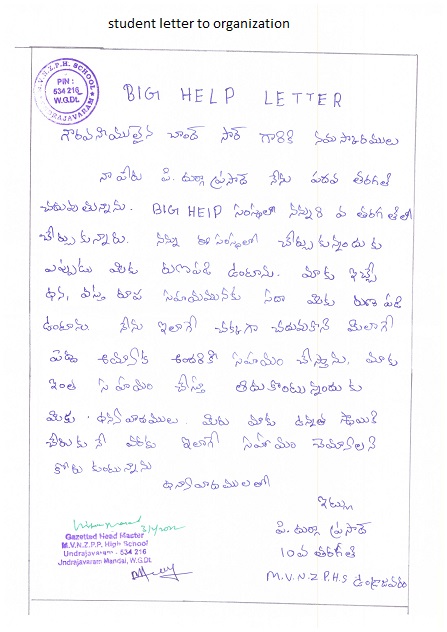 student letter to organization
M.V.N.Z.P.H. SCHOOL
PIN :
534 216
W.G.Dt.
UNDRAJAVARAM
BIG HELP LETTER
గౌరవనీయులైన చాంద్ సార్ గారికి నమస్కారములు
నా పేరు పి. దుర్గా ప్రసాద్ నేను పదవ తరగతి
చదువుతున్నాను. BIG HElP సంస్థలో నన్ను 8 వ తరగతిలో
చేర్చుకున్నారు. నన్ను ఈ సంస్థలో చేర్చుకున్నందుకు
ఎప్పుడు మీకు రుణపడి ఉంటాను. మాకు ఇచ్చే
ధన, వస్తు రూప సహాయమునకు సదా మీకు రుణ పడి
ఉంటాను. నేను ఇలాగే చక్కగా చదువుకొని మీలాగే
పెద్ద అయ్యాక అందరికి సహాయం చేస్తాను. మాకు
ఇంత సహాయం చేస్తూ ఆదుకొంటున్నందుకు
మీకు ధన్యవాదములు. మీరు మాకు ఉన్నత స్థాయికి
చేరుకునే వరకు ఇలాగే సహాయం చేయాలని
కోరుకుంటున్నాను
ధన్యవాదములతో
ఇట్లు
పి. దుర్గా ప్రసాద్
10వ తరగతి
M.V.N.Z.P.H.S ఉండ్రాజవరం
Gazetted Head Master
M.V.N.Z.P.P. High School
Undrajavaram - 534 216
Undrajavaram Mandal, W.G.Dt.